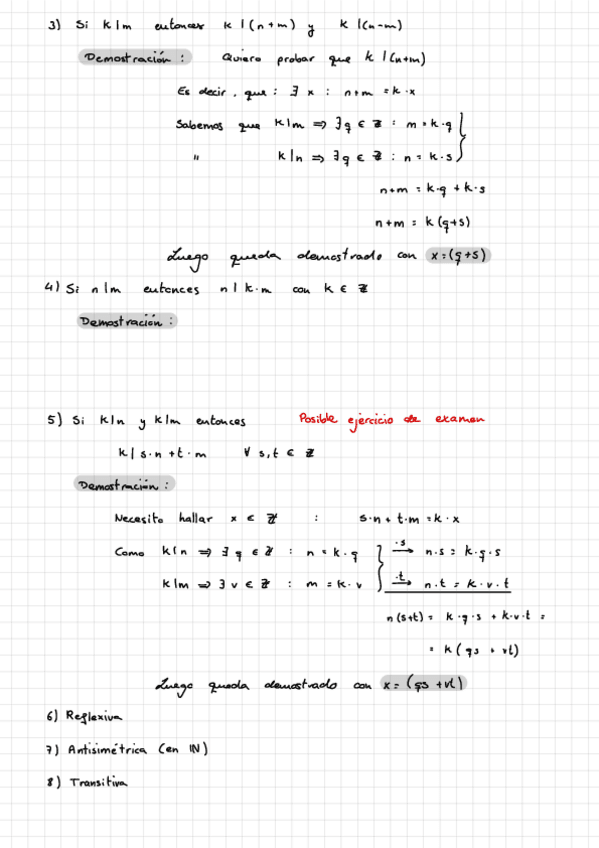 3) Si k|m entonces k|(n+m) y k|(n-m)
Demostración: Quiero probar que k|(n+m)
Es decir, que: ∃ x : n+m = k·x
Sabemos que k|m ⇒ ∃q ∈ ℤ : m = k·q
" k|n ⇒ ∃q ∈ ℤ : n = k·s
n+m = k·q + k·s
n+m = k(q+s)
Luego queda demostrado con x=(q+s)
4) Si n|m entonces n|k·m con k ∈ ℤ
Demostración:
5) Si k|n y k|m entonces Posible ejercicio de examen
k|s·n+t·m ∀ s,t ∈ ℤ
Demostración:
Necesito hallar x ∈ ℤ : s·n + t·m = k·x
Como k|n ⇒ ∃q ∈ ℤ : n = k·q ·s→ n·s = k·q·s
k|m ⇒ ∃v ∈ ℤ : m = k·v ·t→ n·t = k·v·t
n(s+t) = k·q·s + k·v·t =
= k(qs + vt)
Luego queda demostrado con x=(qs+vt)
6) Reflexiva
7) Antisimétrica (en ℕ)
8) Transitiva